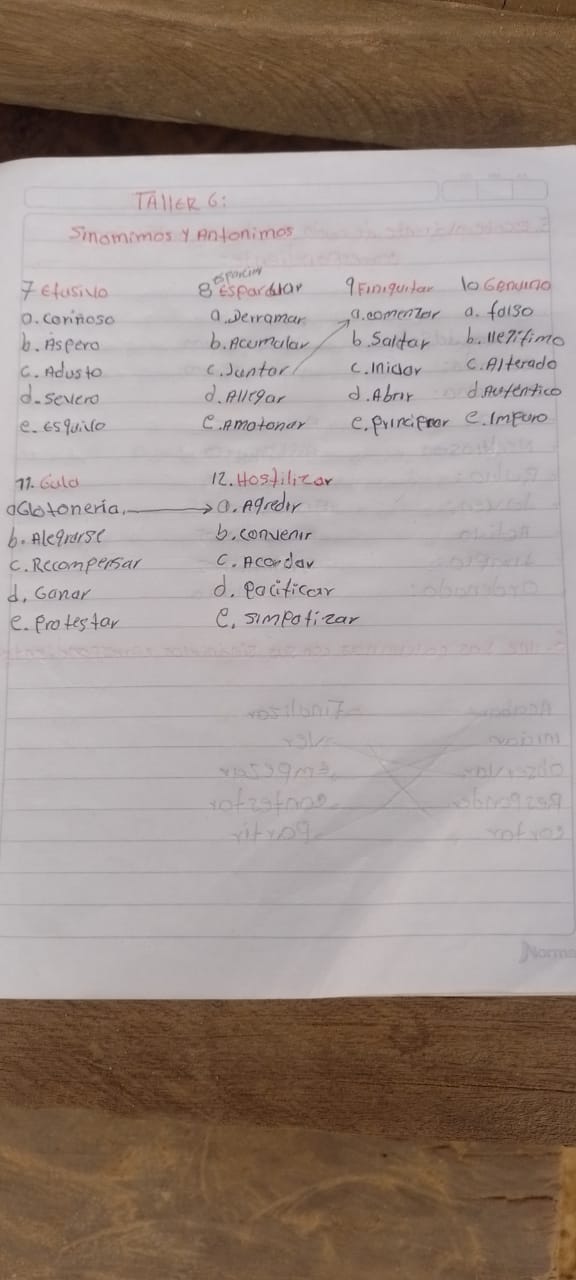 TALLER 6:
Sinomimos y Antonimos
7 Efusivo
a. Coriñoso
b. Aspero
c. Adusto
d. Severo
e. Esquivo
esparcir
8 Esparduar
a. Derramar
b. Acumular
c. Juntar
d. Allegar
e. Amotonar
9 Finiquitar
a. comenzar
b. Saltar
c. Iniciar
d. Abrir
e. principar
10 Genuino
a. falso
b. Ilegitimo
c. Alterado
d. Auténtico
e. Impuro
11. Gula
a Glotoneria
b. Alegrarse
c. Recompensar
d. Ganar
e. protestar
12. Hostilizar
a. Agredir
b. convenir
c. Acordar
d. pacificar
e. simpatizar
Norma